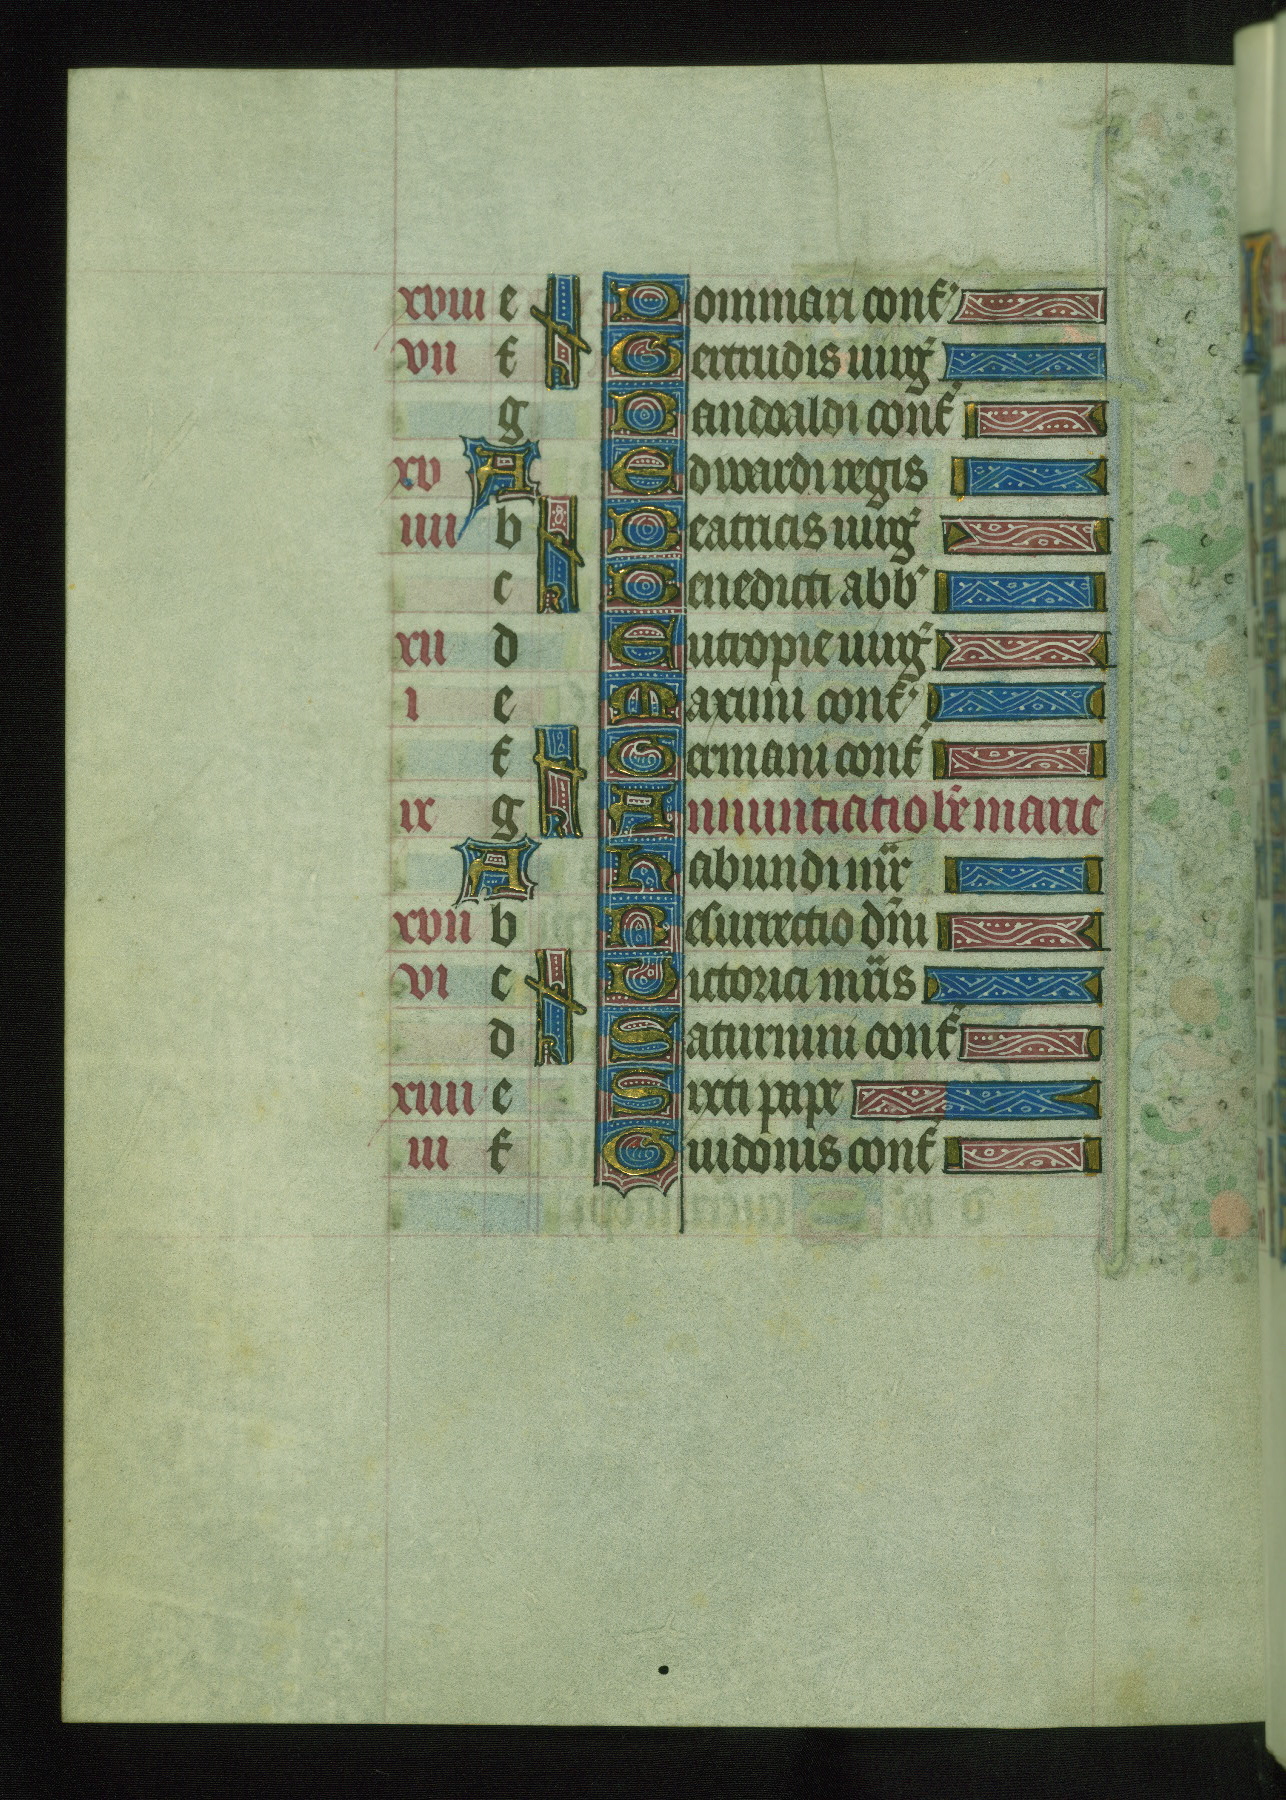 xviii e Dommari conf
vii f Gertrudis uirg
g Bandoaldi conf
xv A Edwardi regis
iiii b Beatricis uirg
c Benedicti abb
xii d Eutropie uirg
i e Maximi conf
f Germani conf
ix g Annuntiatio be marie
A habundi mr
xvii b Resurrectio dni
vi c Victorici mris
d Saturnini conf
xiiii e Sixti pape
iii f Guidonis conf